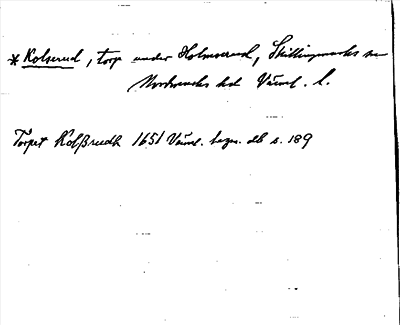 * Kolserud, torp under Holmserud, Skillingmarks sn
Nordmarks hd Värml. l.
Torpet Kolßrudh 1651 Värml. db s. 189